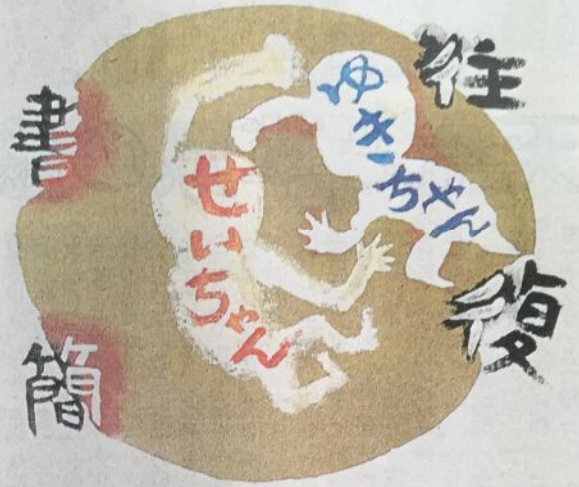 往復
書簡
ゆきちゃん
せいちゃん